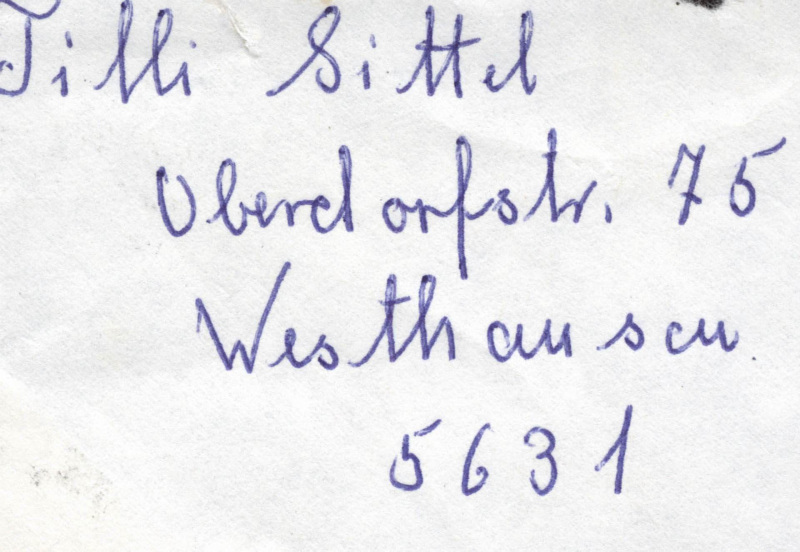 Tilli Sittel
Oberdorfstr. 75
Westhausen
5631